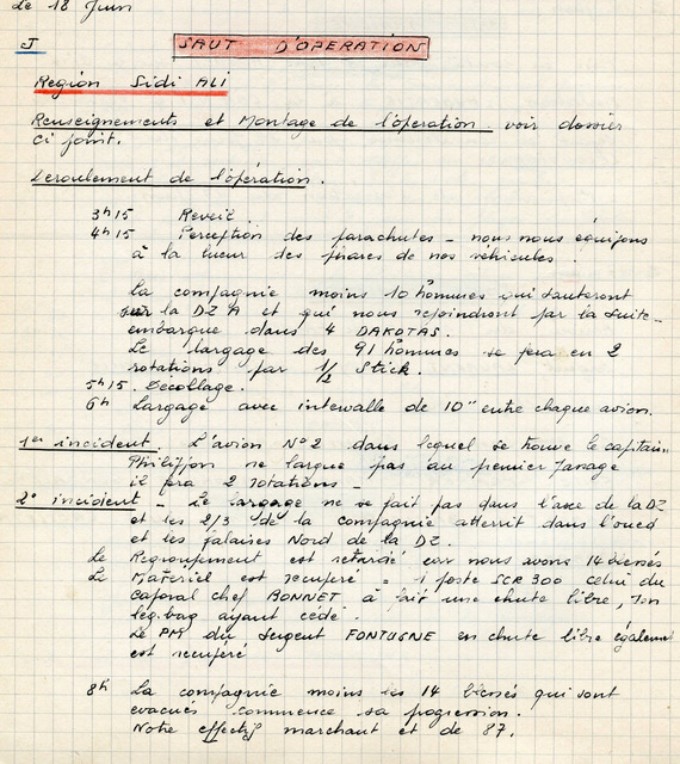 Le 18 Juin
J
SAUT D'OPERATION
Region Sidi ALI
Renseignements et Montage de l'operation. voir dossier
ci joint.
Deroulement de l'opération.
3h15 Reveil.
4h15 Perception des parachutes - nous nous équipons
à la lueur des phares de nos véhicules.
la compagnie moins 10 hommes qui sauteront
sur la DZ A et qui nous rejoindront par la suite -
embarque dans 4 DAKOTAS.
Le largage des 91 hommes se fera en 2
rotations par 1/2 Stick.
5h15. Décollage.
6h Largage avec intervalle de 10" entre chaque avion.
1er incident. L'avion No 2 dans lequel se trouve le capitaine
Philippon ne largue pas au premier passage
il fera 2 rotations -
2e incident - Le largage ne se fait pas dans l'axe de la DZ
et les 2/3 de la compagnie atterrit dans l'oued
et les falaises Nord de la DZ.
Le Regroupement est retardé car nous avons 14 blessés
Le Materiel est recuperé - 1 poste SCR 300 celui du
caporal chef BONNET à fait une chute libre, son
leg.bag ayant cédé.
Le PM du Sergent FONTUGNE en chute libre également
est recuperé
8h La compagnie moins les 14 blessés qui sont
evacués commence sa progression.
Notre effectif marchant et de 87.